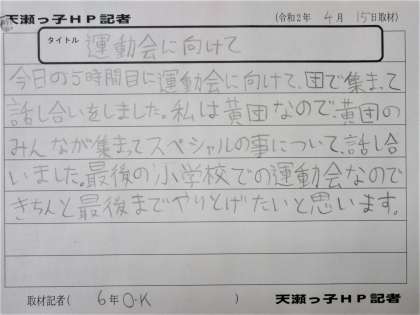 天瀬っ子HP記者
(令和2年 4月 15日取材)
タイトル 運動会に向けて
今日の5時間目に運動会に向けて、団で集まって
話し合いをしました。私は黄団なので、黄団の
みんなが集まってスペシャルの事について、話し合
いました。最後の小学校での運動会なので
きちんと最後までやりとげたいと思います。
取材記者( 6年 O.K ) 天瀬っ子HP記者